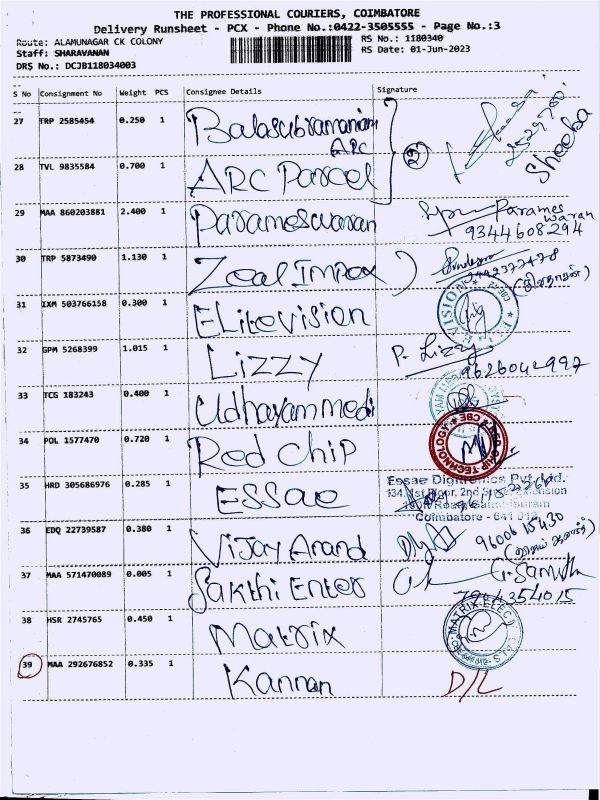 THE PROFESSIONAL COURIERS, COIMBATORE
Delivery Runsheet - PCX - Phone No.:0422-3505555 - Page No.:3
Route: ALAMUNAGAR CK COLONY RS No.: 1180340
Staff: SHARAVANAN RS Date: 01-Jun-2023
DRS No.: DCJB118034003
S No Consignment No Weight PCS Consignee Details Signature
27 TRP 2585454 0.250 1 Balasubramaniam
ARC
Sheeba
28 TVL 9835584 0.700 1 ARC Parcel
29 MAA 860203881 2.400 1 Parameswaran Parames
waran
9344608294
30 TRP 5873490 1.130 1 Zeal Impex
31 IXM 503766158 0.300 1 ELitevision
32 GPM 5268399 1.015 1 Lizzy P. Lizzy
9626042997
33 TCG 183243 0.400 1 Udhayam medi
34 POL 1577470 0.720 1 Red chip
RED CHIP TECHNOLOGY CBE
35 HRD 305686976 0.285 1 ESSae
Essae Digitronics Pvt. Ltd.
Coimbatore
36 EDQ 22739587 0.380 1 Vijay Anand 9600615430
37 MAA 571470089 0.005 1 Sakthi Enter
38 HSR 2745765 0.450 1 Matrix
39 MAA 292676852 0.335 1 Kannan D/L